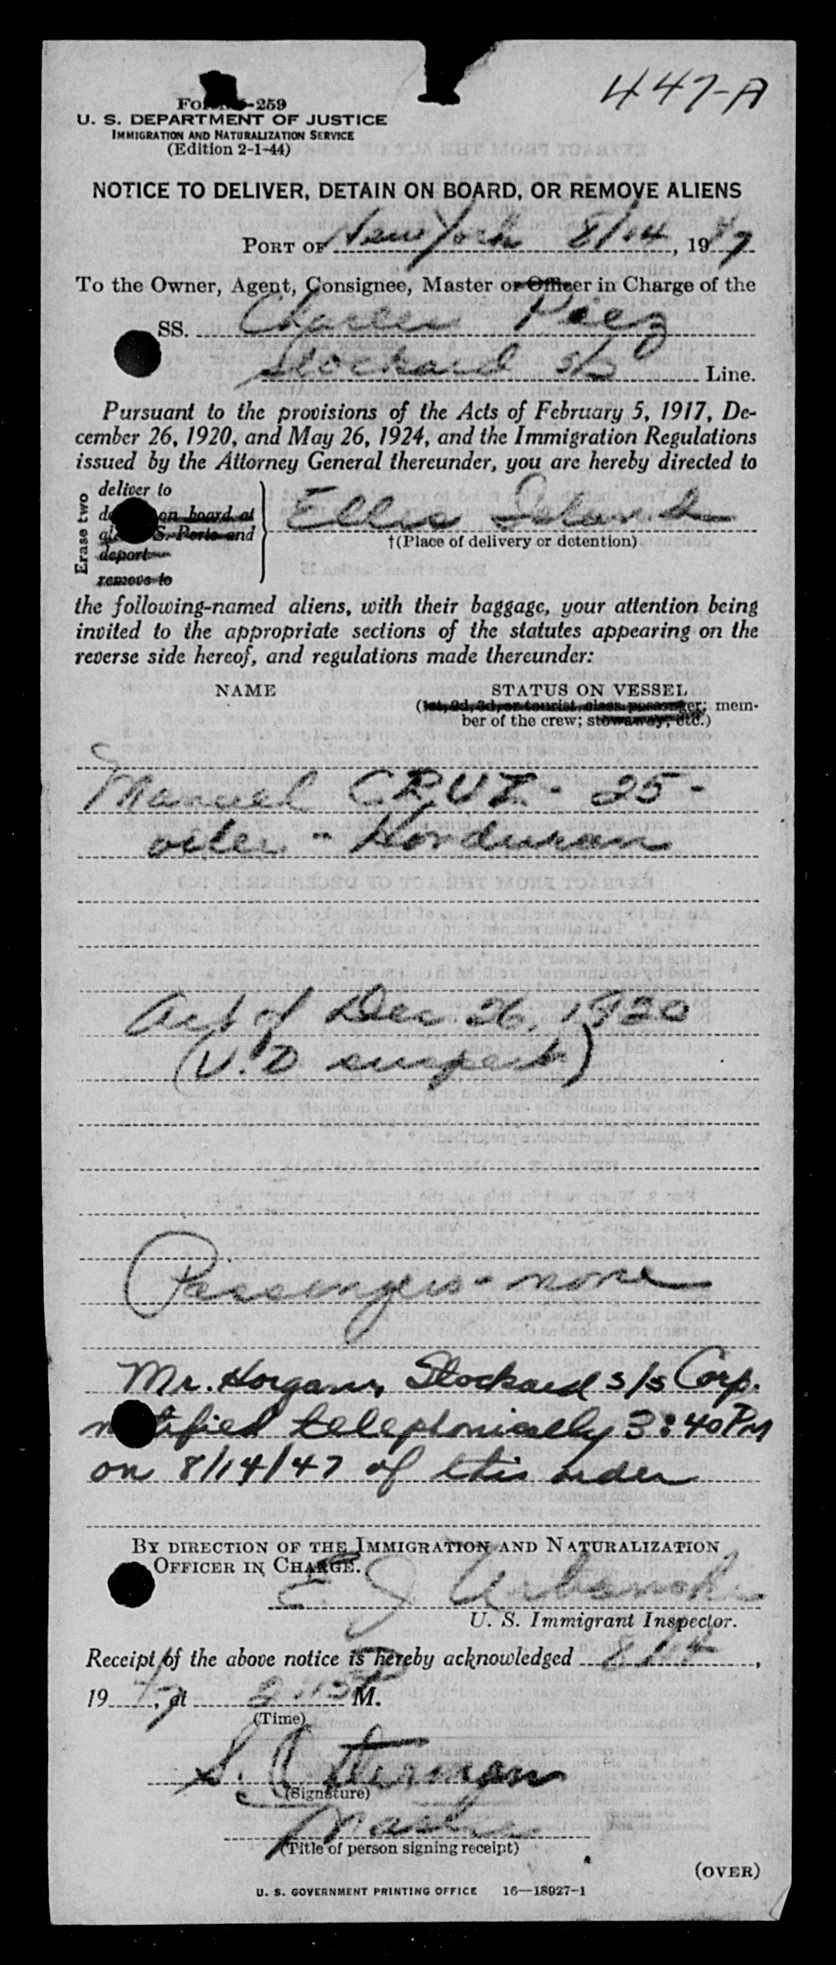 447-A
-259
U. S. DEPARTMENT OF JUSTICE
IMMIGRATION AND NATURALIZATION SERVICE
(Edition 2-1-44)
NOTICE TO DELIVER, DETAIN ON BOARD, OR REMOVE ALIENS
PORT OF New York 8/14, 1947
To the Owner, Agent, Consignee, Master or Officer in Charge of the
SS. Charles Piez
Stockard s/s Line.
Pursuant to the provisions of the Acts of February 5, 1917, De-
cember 26, 1920, and May 26, 1924, and the Immigration Regulations
issued by the Attorney General thereunder, you are hereby directed to
Erase two
deliver to
on board at
S. Ports and
deport
remove to
Ellis Island
†(Place of delivery or detention)
the following-named aliens, with their baggage, your attention being
invited to the appropriate sections of the statutes appearing on the
reverse side hereof, and regulations made thereunder:
NAME STATUS ON VESSEL
(1st, 2d, 3d, or tourist class passenger; mem-
ber of the crew; stowaway, etc.)
Manuel CRUZ - 25 -
oiler - Honduran
Act of Dec 26, 1920
(V.D suspect)
Passengers - none
Mr. Horgan, Stockard s/s Corp.
notified telephonically 3:40 PM
on 8/14/47 of this order
BY DIRECTION OF THE IMMIGRATION AND NATURALIZATION
OFFICER IN CHARGE.
E J Urbanski
U. S. Immigrant Inspector.
Receipt of the above notice is hereby acknowledged 8/14,
1947, at P M.
(Time)
S. Osterman
(Signature)
Master
(Title of person signing receipt)
(OVER)
U. S. GOVERNMENT PRINTING OFFICE 16—18927-1